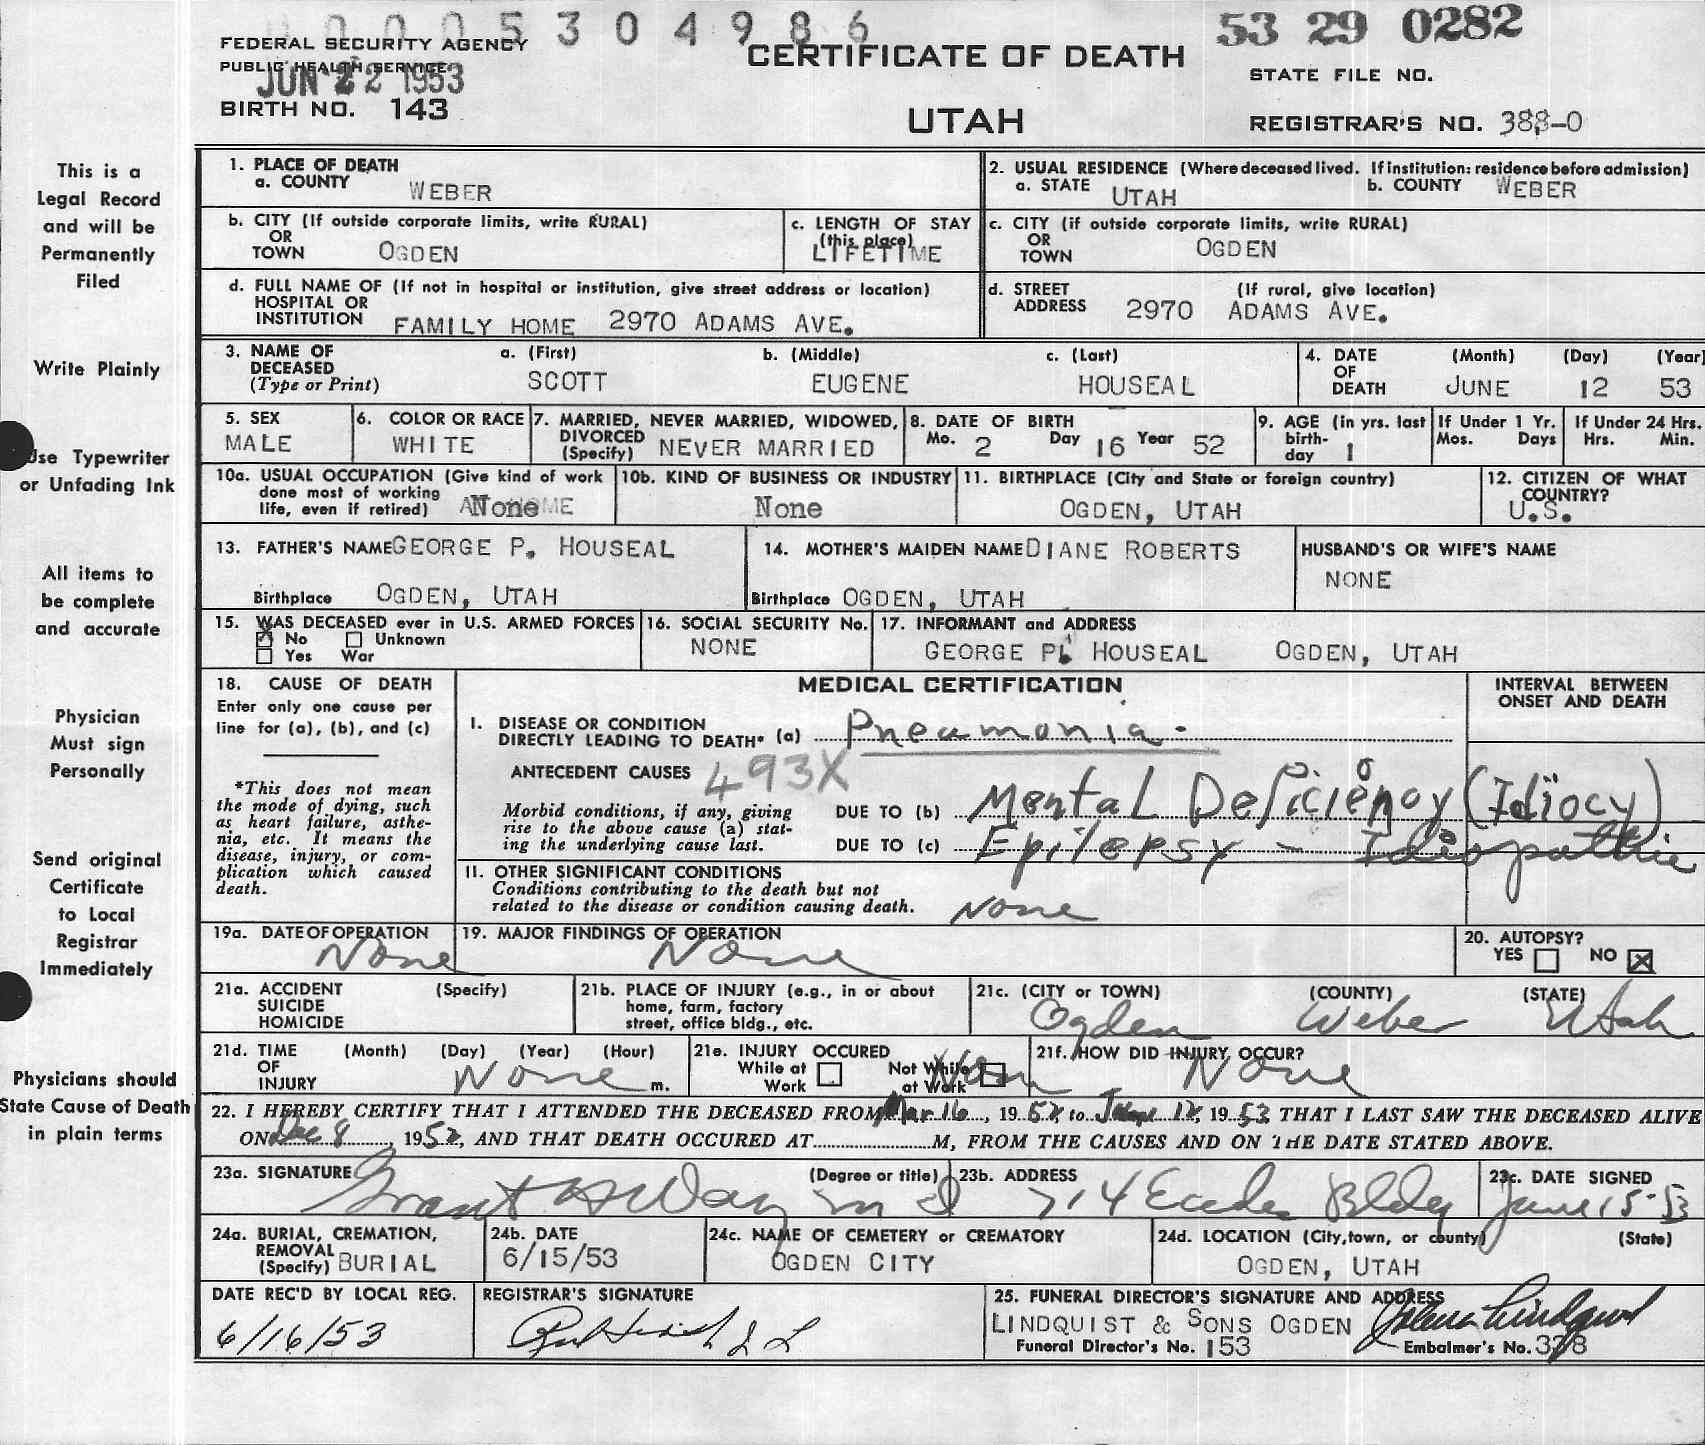 0005304986
53 29 0282
FEDERAL SECURITY AGENCY
PUBLIC HEALTH SERVICE
JUN 22 1953
CERTIFICATE OF DEATH
STATE FILE NO.
BIRTH NO. 143
UTAH
REGISTRAR'S NO. 388-0
This is a
Legal Record
and will be
Permanently
Filed
Write Plainly
Use Typewriter
or Unfading Ink
All items to
be complete
and accurate
Physician
Must sign
Personally
Send original
Certificate
to Local
Registrar
Immediately
Physicians should
State Cause of Death
in plain terms
1. PLACE OF DEATH
a. COUNTY WEBER
2. USUAL RESIDENCE (Where deceased lived. If institution: residence before admission)
a. STATE UTAH b. COUNTY WEBER
b. CITY (If outside corporate limits, write RURAL)
OR
TOWN OGDEN
c. LENGTH OF STAY
(this place)
LIFETIME
c. CITY (if outside corporate limits, write RURAL)
OR
TOWN OGDEN
d. FULL NAME OF (If not in hospital or institution, give street address or location)
HOSPITAL OR
INSTITUTION FAMILY HOME 2970 ADAMS AVE.
d. STREET (If rural, give location)
ADDRESS 2970 ADAMS AVE.
3. NAME OF
DECEASED
(Type or Print)
a. (First) b. (Middle) c. (Last)
SCOTT EUGENE HOUSEAL
4. DATE (Month) (Day) (Year)
OF
DEATH JUNE 12 53
5. SEX
MALE
6. COLOR OR RACE
WHITE
7. MARRIED, NEVER MARRIED, WIDOWED,
DIVORCED
(Specify) NEVER MARRIED
8. DATE OF BIRTH
Mo. 2 Day 16 Year 52
9. AGE (in yrs. last
birth-
day 1
If Under 1 Yr.
Mos. Days
If Under 24 Hrs.
Hrs. Min.
10a. USUAL OCCUPATION (Give kind of work
done most of working
life, even if retired) None
10b. KIND OF BUSINESS OR INDUSTRY
None
11. BIRTHPLACE (City and State or foreign country)
OGDEN, UTAH
12. CITIZEN OF WHAT
COUNTRY?
U.S.
13. FATHER'S NAME GEORGE P. HOUSEAL
Birthplace OGDEN, UTAH
14. MOTHER'S MAIDEN NAME DIANE ROBERTS
Birthplace OGDEN, UTAH
HUSBAND'S OR WIFE'S NAME
NONE
15. WAS DECEASED ever in U.S. ARMED FORCES
No Unknown
Yes War
16. SOCIAL SECURITY No.
NONE
17. INFORMANT and ADDRESS
GEORGE P. HOUSEAL OGDEN, UTAH
18. CAUSE OF DEATH
Enter only one cause per
line for (a), (b), and (c)
*This does not mean
the mode of dying, such
as heart failure, asthe-
nia, etc. It means the
disease, injury, or com-
plication which caused
death.
MEDICAL CERTIFICATION
INTERVAL BETWEEN
ONSET AND DEATH
I. DISEASE OR CONDITION
DIRECTLY LEADING TO DEATH* (a) Pneumonia.
ANTECEDENT CAUSES 493X
Morbid conditions, if any, giving
rise to the above cause (a) stat-
ing the underlying cause last.
DUE TO (b) Mental Deficiency (Idiocy)
DUE TO (c) Epilepsy - Idiopathic
II. OTHER SIGNIFICANT CONDITIONS
Conditions contributing to the death but not
related to the disease or condition causing death. None
19a. DATE OF OPERATION
None
19. MAJOR FINDINGS OF OPERATION
None
20. AUTOPSY?
YES NO
21a. ACCIDENT (Specify)
SUICIDE
HOMICIDE
21b. PLACE OF INJURY (e.g., in or about
home, farm, factory
street, office bldg., etc.
21c. (CITY or TOWN) (COUNTY) (STATE)
Ogden Weber Utah
21d. TIME (Month) (Day) (Year) (Hour)
OF
INJURY None m.
21e. INJURY OCCURED
While at Not While
Work at Work
21f. HOW DID INJURY OCCUR?
None
22. I HEREBY CERTIFY THAT I ATTENDED THE DECEASED FROM Mar 16, 1952, to 12, 1953 THAT I LAST SAW THE DECEASED ALIVE
ON Dec 8, 1952, AND THAT DEATH OCCURED AT M, FROM THE CAUSES AND ON THE DATE STATED ABOVE.
23a. SIGNATURE (Degree or title)
Grant H Way M D
23b. ADDRESS
714 Eccles Bldg
23c. DATE SIGNED
June 15-53
24a. BURIAL, CREMATION,
REMOVAL
(Specify) BURIAL
24b. DATE
6/15/53
24c. NAME OF CEMETERY or CREMATORY
OGDEN CITY
24d. LOCATION (City, town, or county) (State)
OGDEN, UTAH
DATE REC'D BY LOCAL REG.
6/16/53
REGISTRAR'S SIGNATURE
25. FUNERAL DIRECTOR'S SIGNATURE AND ADDRESS
LINDQUIST & SONS OGDEN Lindquist
Funeral Director's No. 153 Embalmer's No. 338